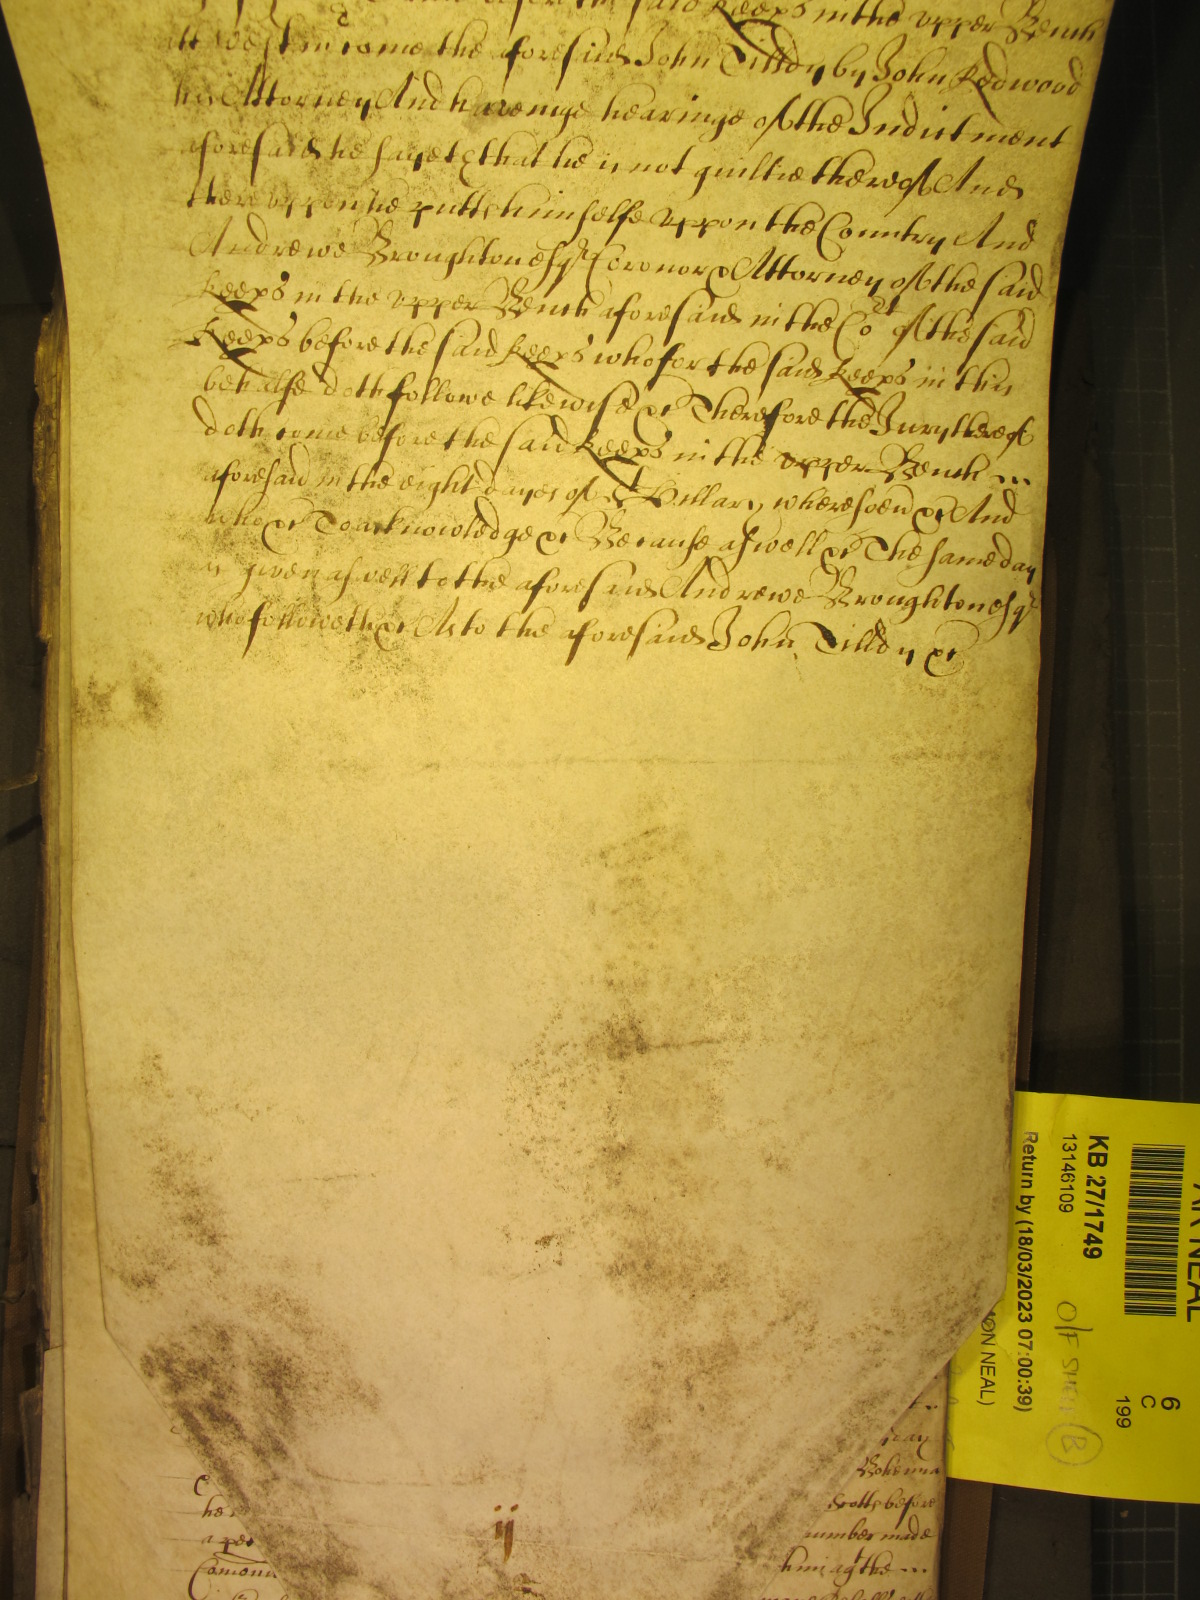 said Keeps in the upper Bench
att Westm come the aforesaid John Tilldy by John Redwood
his Attorney And haveinge hearinge of the Indictment
aforesaid he sayeth that he is not guiltie thereof And
thereuppon he putts himselfe uppon the Country And
Andrewe Broughton esqr Coronor & Attorney of the said
Keeps in the upper Bench aforesaid in the Cort of the said
Keeps before the said Keeps who for the said Keeps in this
behalfe doth followe likewise &c Therefore the Jury thereof
doth come before the said Keeps in the upper Bench ...
aforesaid in the eight dayes of St Hillary wheresoevr &c And
who &c To acknowledge &c Because aswell &c The same day
is given aswell to the aforesaid Andrewe Broughton esqr
who followeth &c As to the aforesaid John Tilldy &c
day
Scotts before
number made
him agt the ...
Comonn
ij
AR NEAL
6
C
199
KB 27/1749
13146109
Return by (18/03/2023 07:00:39)
ON NEAL)
B